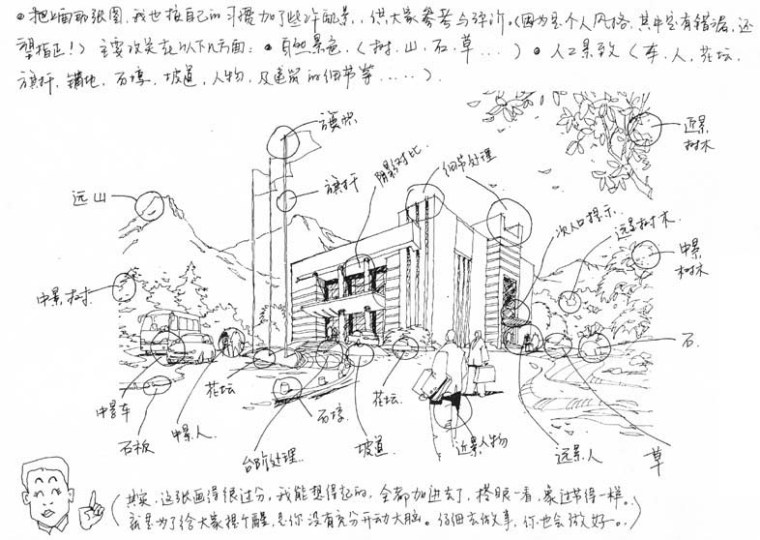 • 把上面那张图,我也按自己的习惯加了些许配景,供大家参考与评价。(因为是个人风格,其中定有错漏,还
望指正!) 主要改变在以下几方面: • 自然景色,(树.山.石.草...) • 人工景致(车.人.花坛.
旗杆.铺地.石墩.坡道.人物.及建筑的细节等.....).
旗帜
近景
树木
阴影对比
细节处理
旗杆
远山
次入口提示.
远景树木.
中景
树木
中景树.
石.
中景车
花坛
石墩
花坛.
石板
中景人
台阶处理.
坡道.
近景人物
远景人
草
(其实,这张画得很过分,我能想得起的,全都加进去了,搭眼一看,象过节得一样。
就是为了给大家提个醒,是你没有充分开动大脑。仔细去做事,你也会做好。)